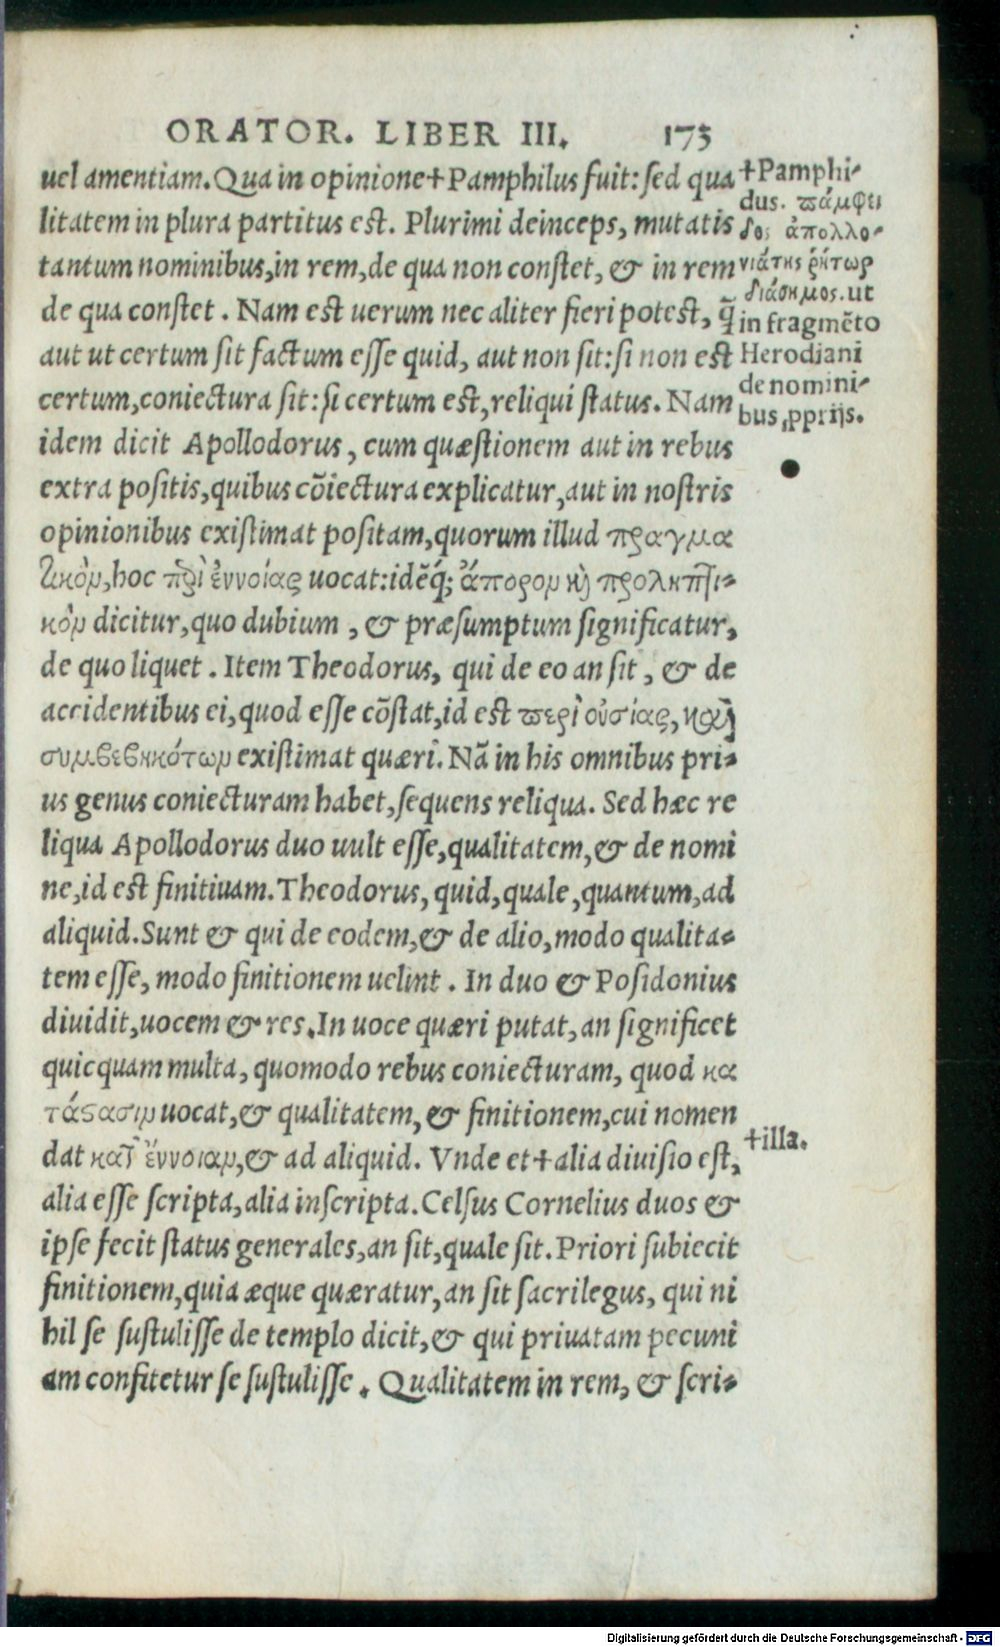 ORATOR. LIBER III. 173
uel amentiam. Qua in opinione ✝Pamphilus fuit: sed qua
litatem in plura partitus est. Plurimi deinceps, mutatis
tantum nominibus, in rem, de qua non constet, & in rem
de qua constet. Nam est uerum nec aliter fieri potest, q̃
aut ut certum sit factum esse quid, aut non sit: si non est
certum, coniectura sit: si certum est, reliqui status. Nam
idem dicit Apollodorus, cum quæstionem aut in rebus
extra positis, quibus cōiectura explicatur, aut in nostris
opinionibus existimat positam, quorum illud πραγμα
τικὸν, hoc περὶ ἐννοίας uocat: idēq́; ἄπορον κὶ προληπτι-
κὸν dicitur, quo dubium, & præsumptum significatur,
de quo liquet. Item Theodorus, qui de eo an sit, & de
accidentibus ei, quod esse cōstat, id est περὶ οὐσίας, καὶ
συμβεβηκότων existimat quæri. Nā in his omnibus pri-
us genus coniecturam habet, sequens reliqua. Sed hæc re
liqua Apollodorus duo uult esse, qualitatem, & de nomi
ne, id est finitiuam. Theodorus, quid, quale, quantum, ad
aliquid. Sunt & qui de eodem, & de alio, modo qualita-
tem esse, modo finitionem uelint. In duo & Posidonius
diuidit, uocem & res. In uoce quæri putat, an significet
quicquam multa, quomodo rebus coniecturam, quod κα
τάϛασιν uocat, & qualitatem, & finitionem, cui nomen
dat κατ᾽ ἔννοιαν, & ad aliquid. Vnde et ✝alia diuisio est,
alia esse scripta, alia inscripta. Celsus Cornelius duos &
ipse fecit status generales, an sit, quale sit. Priori subiecit
finitionem, quia æque quæratur, an sit sacrilegus, qui ni
hil se sustulisse de templo dicit, & qui priuatam pecuni
am confitetur se sustulisse. Qualitatem in rem, & scri-
✝Pamphi-
dus. πάμφει
δος ἀπολλο-
νιάτης ῥήτωρ
διάσημος. ut
in fragmēto
Herodiani
de nomini-
bus ꝓprijs.
✝illa.
Digitalisierung gefördert durch die Deutsche Forschungsgemeinschaft - DFG